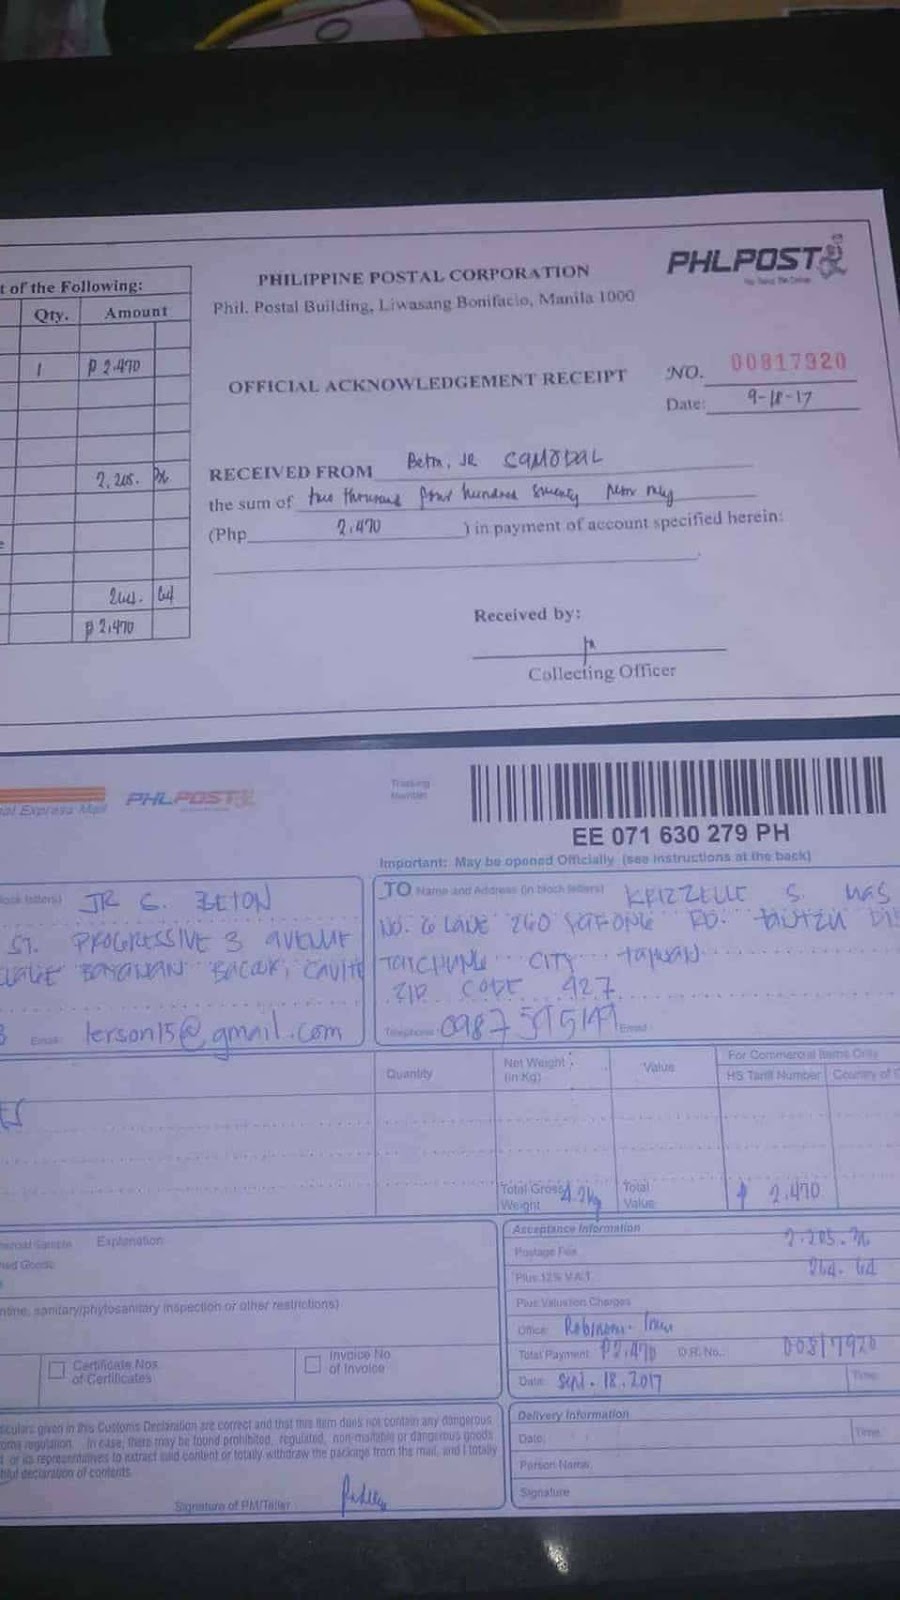 t of the Following:
Qty. Amount
1 ₱ 2.470
2,205. 36
e
264. 64
₱ 2,470
PHILIPPINE POSTAL CORPORATION
Phil. Postal Building, Liwasang Bonifacio, Manila 1000
PHLPOST
OFFICIAL ACKNOWLEDGEMENT RECEIPT
NO. 00817920
Date: 9-18-17
RECEIVED FROM Beton, JR SAMOBAL
the sum of two thousand four hundred seventy only
(Php 2.470 ) in payment of account specified herein:
Received by:
Collecting Officer
nal Express Mail PHLPOST
Tracking Number
EE 071 630 279 PH
Important: May be opened Officially (see instructions at the back)
block letters) JR S. BETON
ST. PROGRESSIVE 3 AVENUE
BAYANAN BACOOR, CAVITE
3 Email: lerson15@gmail.com
TO Name and Address (in block letters) KRIZZELLE S.
NO. 6 LANE 260 RD. TANTZU DIS
TAICHUNG CITY TAIWAN
ZIP CODE 427
Telephone 0987 Email
Quantity
Net Weight (in Kg)
Value
For Commercial Items Only
HS Tariff Number Country of O
ES
Total Gross Weight 4.2kg
Total Value ₱ 2,470
mercial Sample Explanation
ned Goods
ntine, sanitary/phytosanitary inspection or other restrictions)
Certificate Nos. of Certificates
Invoice No of Invoice
Acceptance Information
Postage Fee 2.205.36
Plus 12% V.A.T 264.64
Plus Valuation Charges
Office: Robinson
Total Payment: ₱2,470 O.R. No.: 00817920
Date: Sept. 18. 2017 Time:
Delivery Information
Date: Time:
Person Name:
Signature
iculars given in this Customs Declaration are correct and that this item does not contain any dangerous
oms regulation. In case, there may be found prohibited, regulated, non-mailable or dangerous goods
t or its representatives to extract said content or totally withdraw the package from the mail, and I totally
hful declaration of contents
Signature of PM/Teller